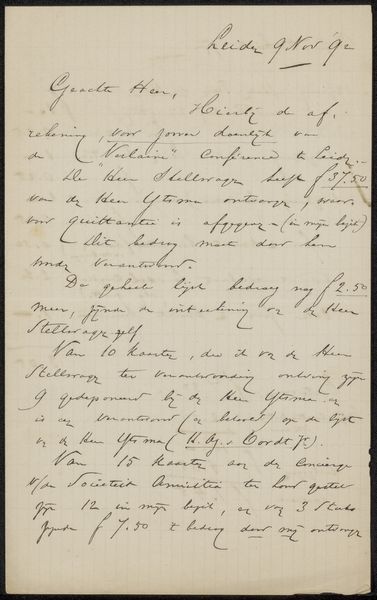 Leiden 9 Nov '92
Geachte Heer,
Hierbij de af-
rekening, voor zoover doenlijk van
de "Verlaine" Conférence te Leiden.
De Heer Stellwagen heeft f 37.50
van den Heer Ytsma ontvangen, waar-
voor quittantie is afgegeven (in mijn bezit)
Dit bedrag moet door hem
worden verantwoord.
De geheele lijst bedraagt nog f 2.50
meer, zijnde de inteekening van den Heer
Stellwagen zelf
Van 10 kaarten, die ik van den Heer
Stellwagen ter verantwoording ontving zijn
9 gedeponeerd bij den Heer Ytsma en
is een verantwoord (en betaald) op de lijst
van den Heer Ytsma (H. Oordt Jr).
Van 15 kaarten aan den Concierge
v/de Societeit Amicitia ter hand gesteld
zijn 12 in mijn bezit, en van 3 stuks
zijnde f 7.50 't bedrag door mij ontvangen